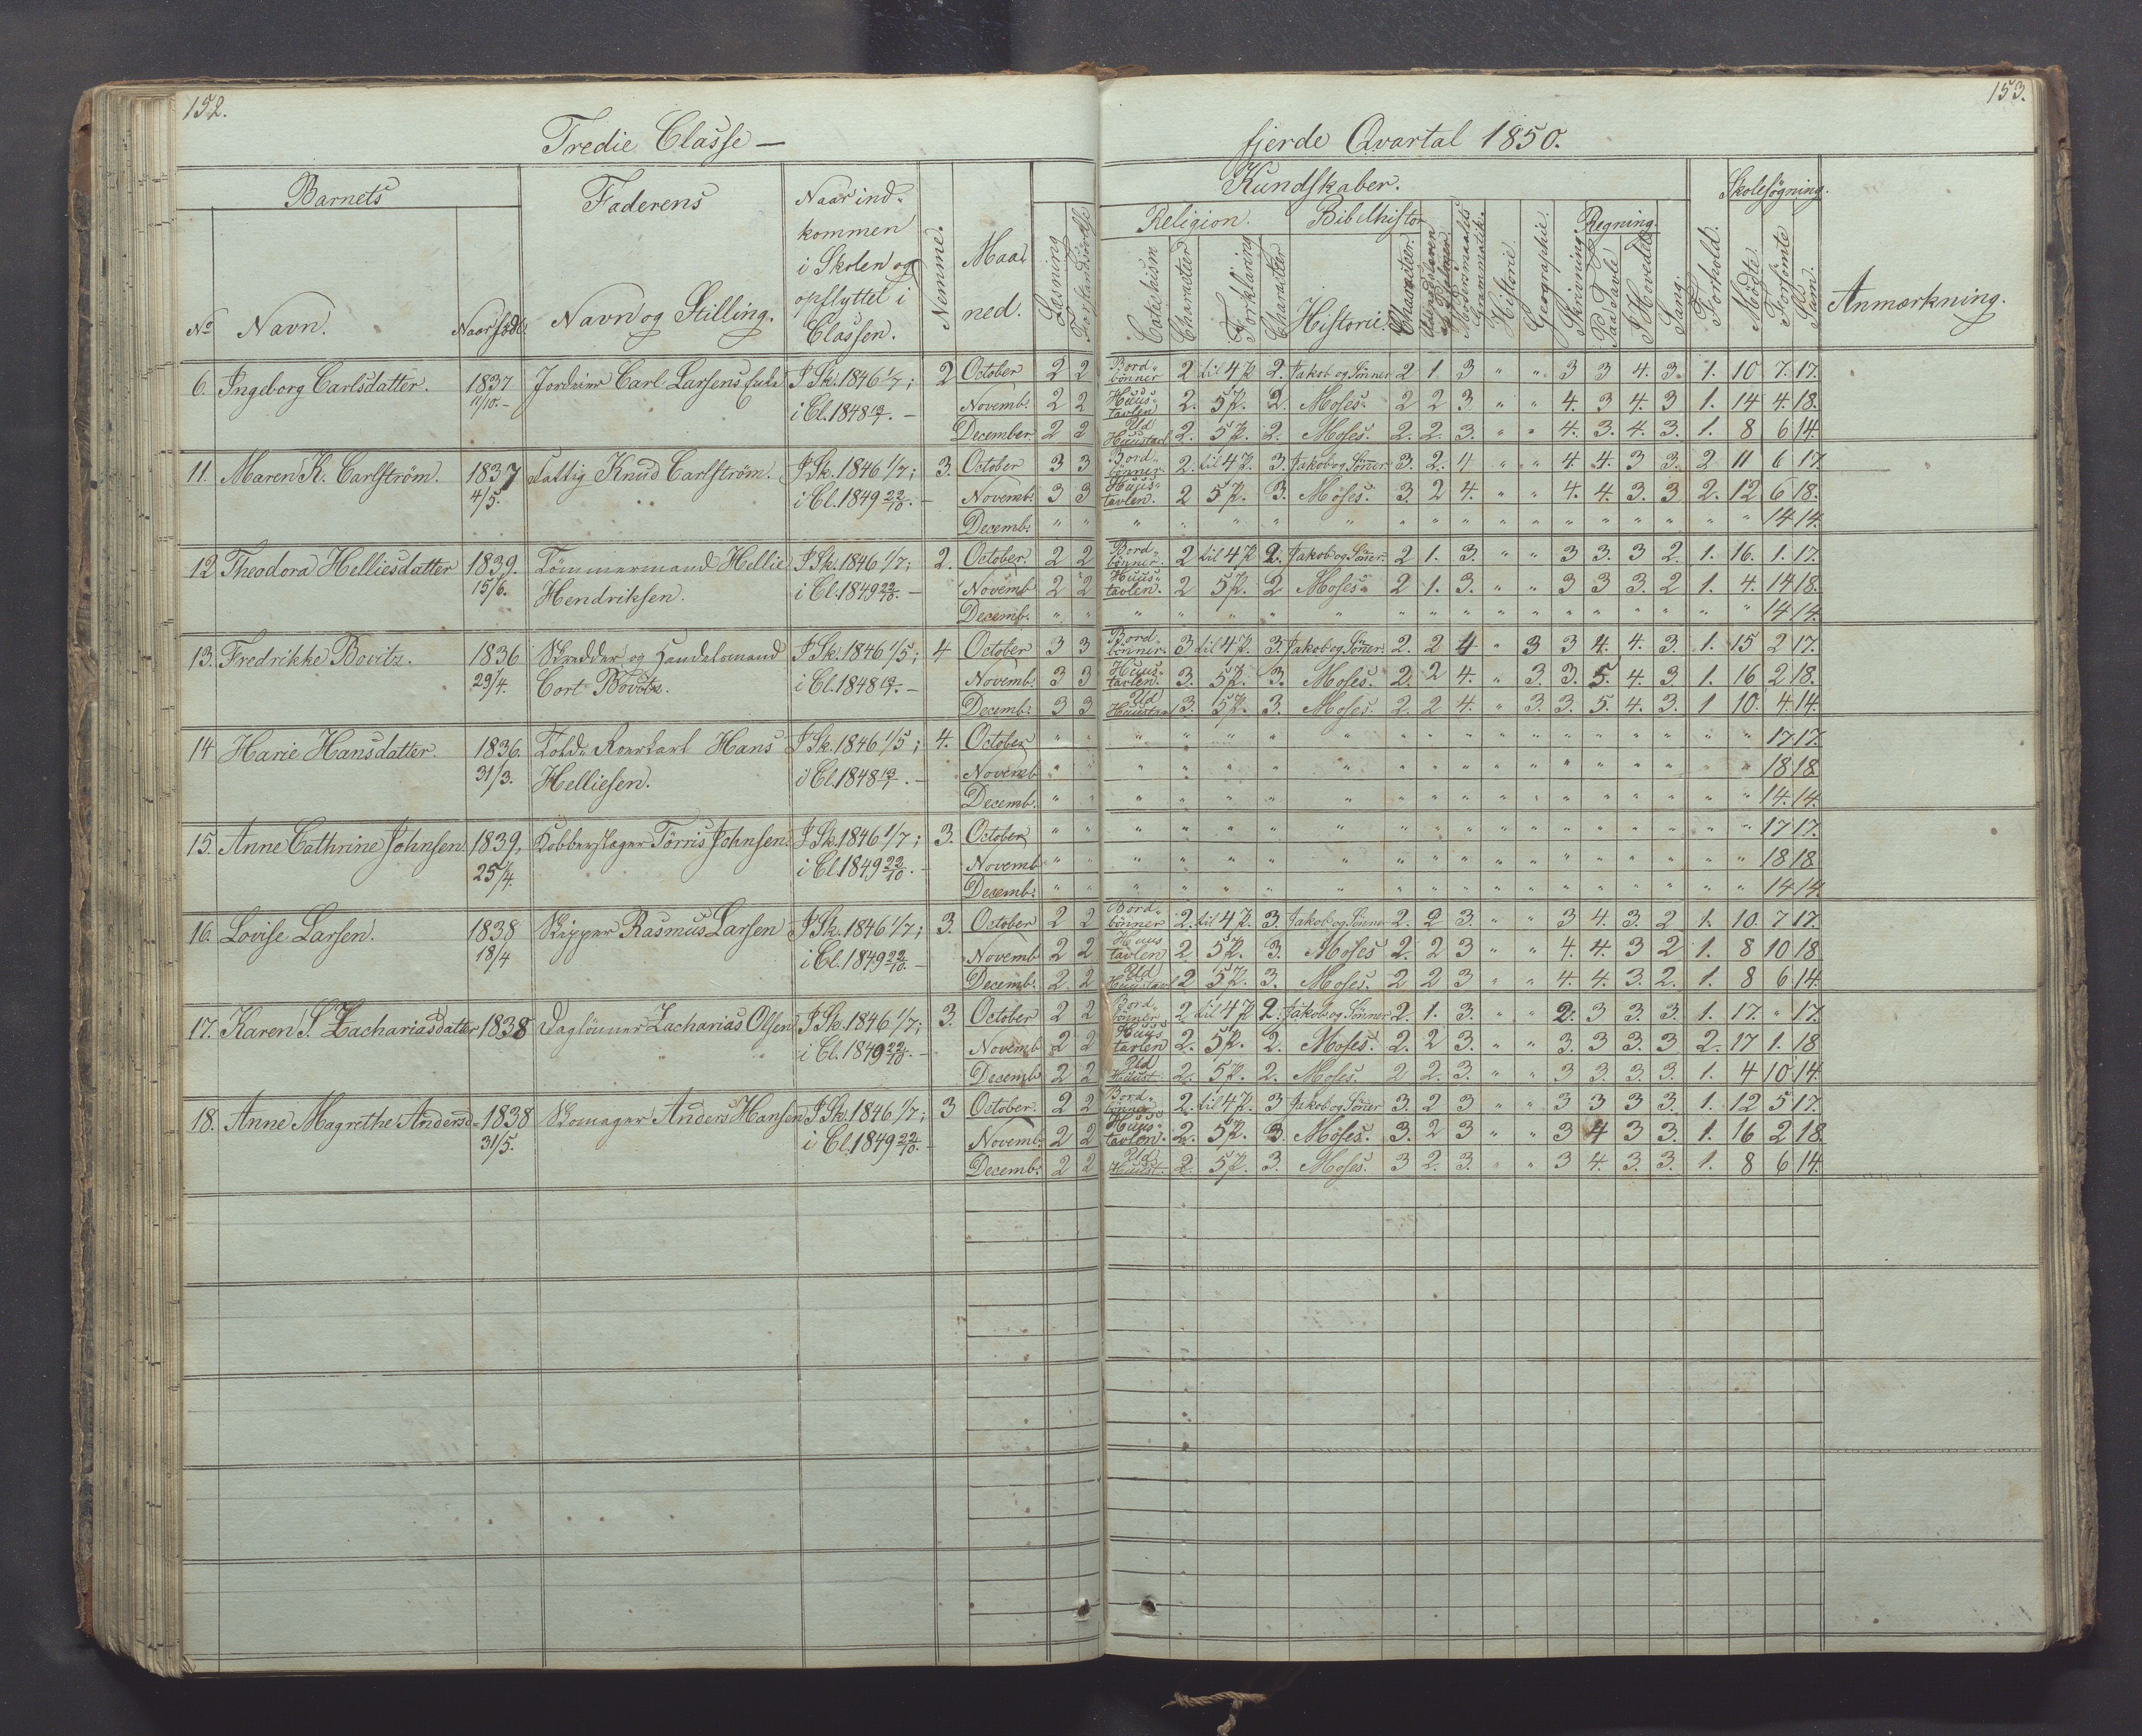 152.
153.
Tredie Classe —
fjerde Qvartal 1850.
Barnets
Faderens
Naar ind-
kommen
i Skolen og
opflyttet i
Classen.
Nemme.
Maa-
ned.
Kundskaber.
Skolesøgning.
Religion.
Bibelhistor
Regning.
No
Navn.
Naar født.
Navn og Stilling.
Læsning
Catechism
Character
Forklaring
Character
Historie.
Character.
Modersmaalets
Grammatik.
Historie.
Geographie.
Skrivning.
Paa Tavle
I Hovedet
Sang.
Forhold.
Mødte
Forsømte
Sam.
Anmærkning.
6. Ingeborg Carlsdatter. 1837 Carl Larsens I Sk. 1846 1/7; 2 October 2 2 Bord- bønner 2 til 4 P. 2. Jakob og Sønner 2 1. 3 " " 3 3 4. 3. 1. 10 7. 17.
11/10. - i Cl. 1848 - Novemb. 2 2 Huus- tavlen 2. 5 P. 2. Moses. 2 2 3 " " 4. 3 4. 3 1. 14 4. 18.
December. 2 2 Ud Huustavl 2. 5 P. 2. Moses. 2. 2. 3. " " 4. 3. 4. 3. 1. 8 6 14.
11. Maren K. Carlström. 1837 Fattig Knud Carlström. I Sk. 1846 1/7; 3. October 3 3 Bord- bønner. 2. til 4 P. 3. Jakob og Sønner. 3. 2. 4 " " 4. 4. 3 3. 2 11 6 17
4/5. i Cl. 1849 22/10. - Novemb. 3 3 Huus- tavlen. 2 5 P. 3. Moses. 3. 2 4. " " 4. 4. 3. 3 2. 12 6 18.
Decemb. " " " " " " " " " " " " " " " " " " 14 14.
12 Theodora Helliesdatter 1839. Tömmermand Hellie I Sk. 1846 1/7; 2. October. 2 2 Bord- bønner. 2 til 4 P 2. Jakob og Sønner. 2 1. 3. " " 3 3. 3 2. 1. 16. 1. 17.
15/6. Hendriksen. i Cl. 1849 22/10. - Novemb 2 2 Huus- tavlen. 2 5 P. 2 Moses. 2 1. 3. " " 3 3 3. 2 1. 4. 14 18.
Decemb. " " " " " " " " " " " " " " " " " " 14 14.
13. Fredrikke Bovitz. 1836 Skredder og Handelsmand I Sk. 1846 1/5; 4 October 3 3 Bord- bønner. 3 til 4 P. 3. Jakob og Sønner. 2. 2 4 " 3 3 4. 4. 3. 1. 15 2 17.
29/4. Cort Bovitz. i Cl. 1848 - Novemb. 3 3 Huus- tavlen. 3. 5 P. 3. Moses. 2. 2 4. " 3. 3. 5. 4. 3 1. 16 2 18.
Decemb. 3 3 Ud Huustavl 3. 5 P. 3. Moses. 2. 2 4. " 3. 3. 5. 4. 3. 1 10. 4. 14.
14 Harie Hansdatter. 1836. Told- Roerkarl Hans I Sk. 1846 1/5; 4. October " " " " " " " " " " " " " " " " " " 17 17.
31/3. Helliesen. i Cl. 1848 - Novemb " " " " " " " " " " " " " " " " " " 18 18
Decemb. " " " " " " " " " " " " " " " " " " 14. 14.
15. Anne Cathrine Johnsen. 1839, Kobberslager Törris Johnsen. I Sk. 1846 1/7; 3. October " " " " " " " " " " " " " " " " " " 17 17.
25/4. i Cl. 1849 22/10. - Novemb " " " " " " " " " " " " " " " " " " 18 18
Decemb. " " " " " " " " " " " " " " " " " " 14 14
16. Lovise Larsen. 1838 Skipper Rasmus Larsen I Sk. 1846 1/7; 3. October 2 2 Bord- bönner 2. til 4 P. 3. Jakob og Sønner 2. 2 3 " " 3 4. 3. 2 1. 10. 7 17.
18/4 i Cl. 1849 22/10. - Novemb 2 2 Huus tavlen 2. 5 P. 3. Moses 2. 2 3 " " 4. 4. 3 2 1. 8 10 18
Decemb. 2. 2 Ud Huustavl 2 5 P. 3. Moses. 2 2 3 " " 4. 4. 3. 2. 1. 8 6 14.
17. Karen S. Zachariasdatter 1838 Daglönner Zacharias Olsen I Sk. 1846 1/7; 3. October 2 2 Bord- bönner. 2 til 4 P 2. Jakob og Sønner 2. 1. 3. " " 2. 3 3 3. 1. 17. " 17.
i Cl. 1849 22/10. - Novemb 2 2 Huus tavlen 2. 5 P. 2. Moses. 2. 2 3. " " 3. 3 3. 3 2. 17 1. 18
Decemb 2 2 Ud Huust. 2. 5 P. 2. Moses. 2 2. 3. " " 3 3. 3. 3. 1. 4 10 14.
18. Anne Magrethe Andersd- 1838 Skomager Anders Hansen I Sk. 1846 1/7; 3 October. 2 2 Bord- bönner 2. til 4 P. 3 Jakob og Sønner 3. 2 3 " " 3 3 3 3. 1. 12 5 17.
31/5. i Cl. 1849 22/10. - Novemb. 2 2 Huus- tavlen. 2. 5 P. 3. Moses. 3. 2 3 " " 3 4 3 3. 1. 16 2 18.
Decemb. 2 2 Ud Huust. 2. 5 P. 3. Moses. 3 2. 3. " " 3 4. 3. 3. 1. 8 6 14.